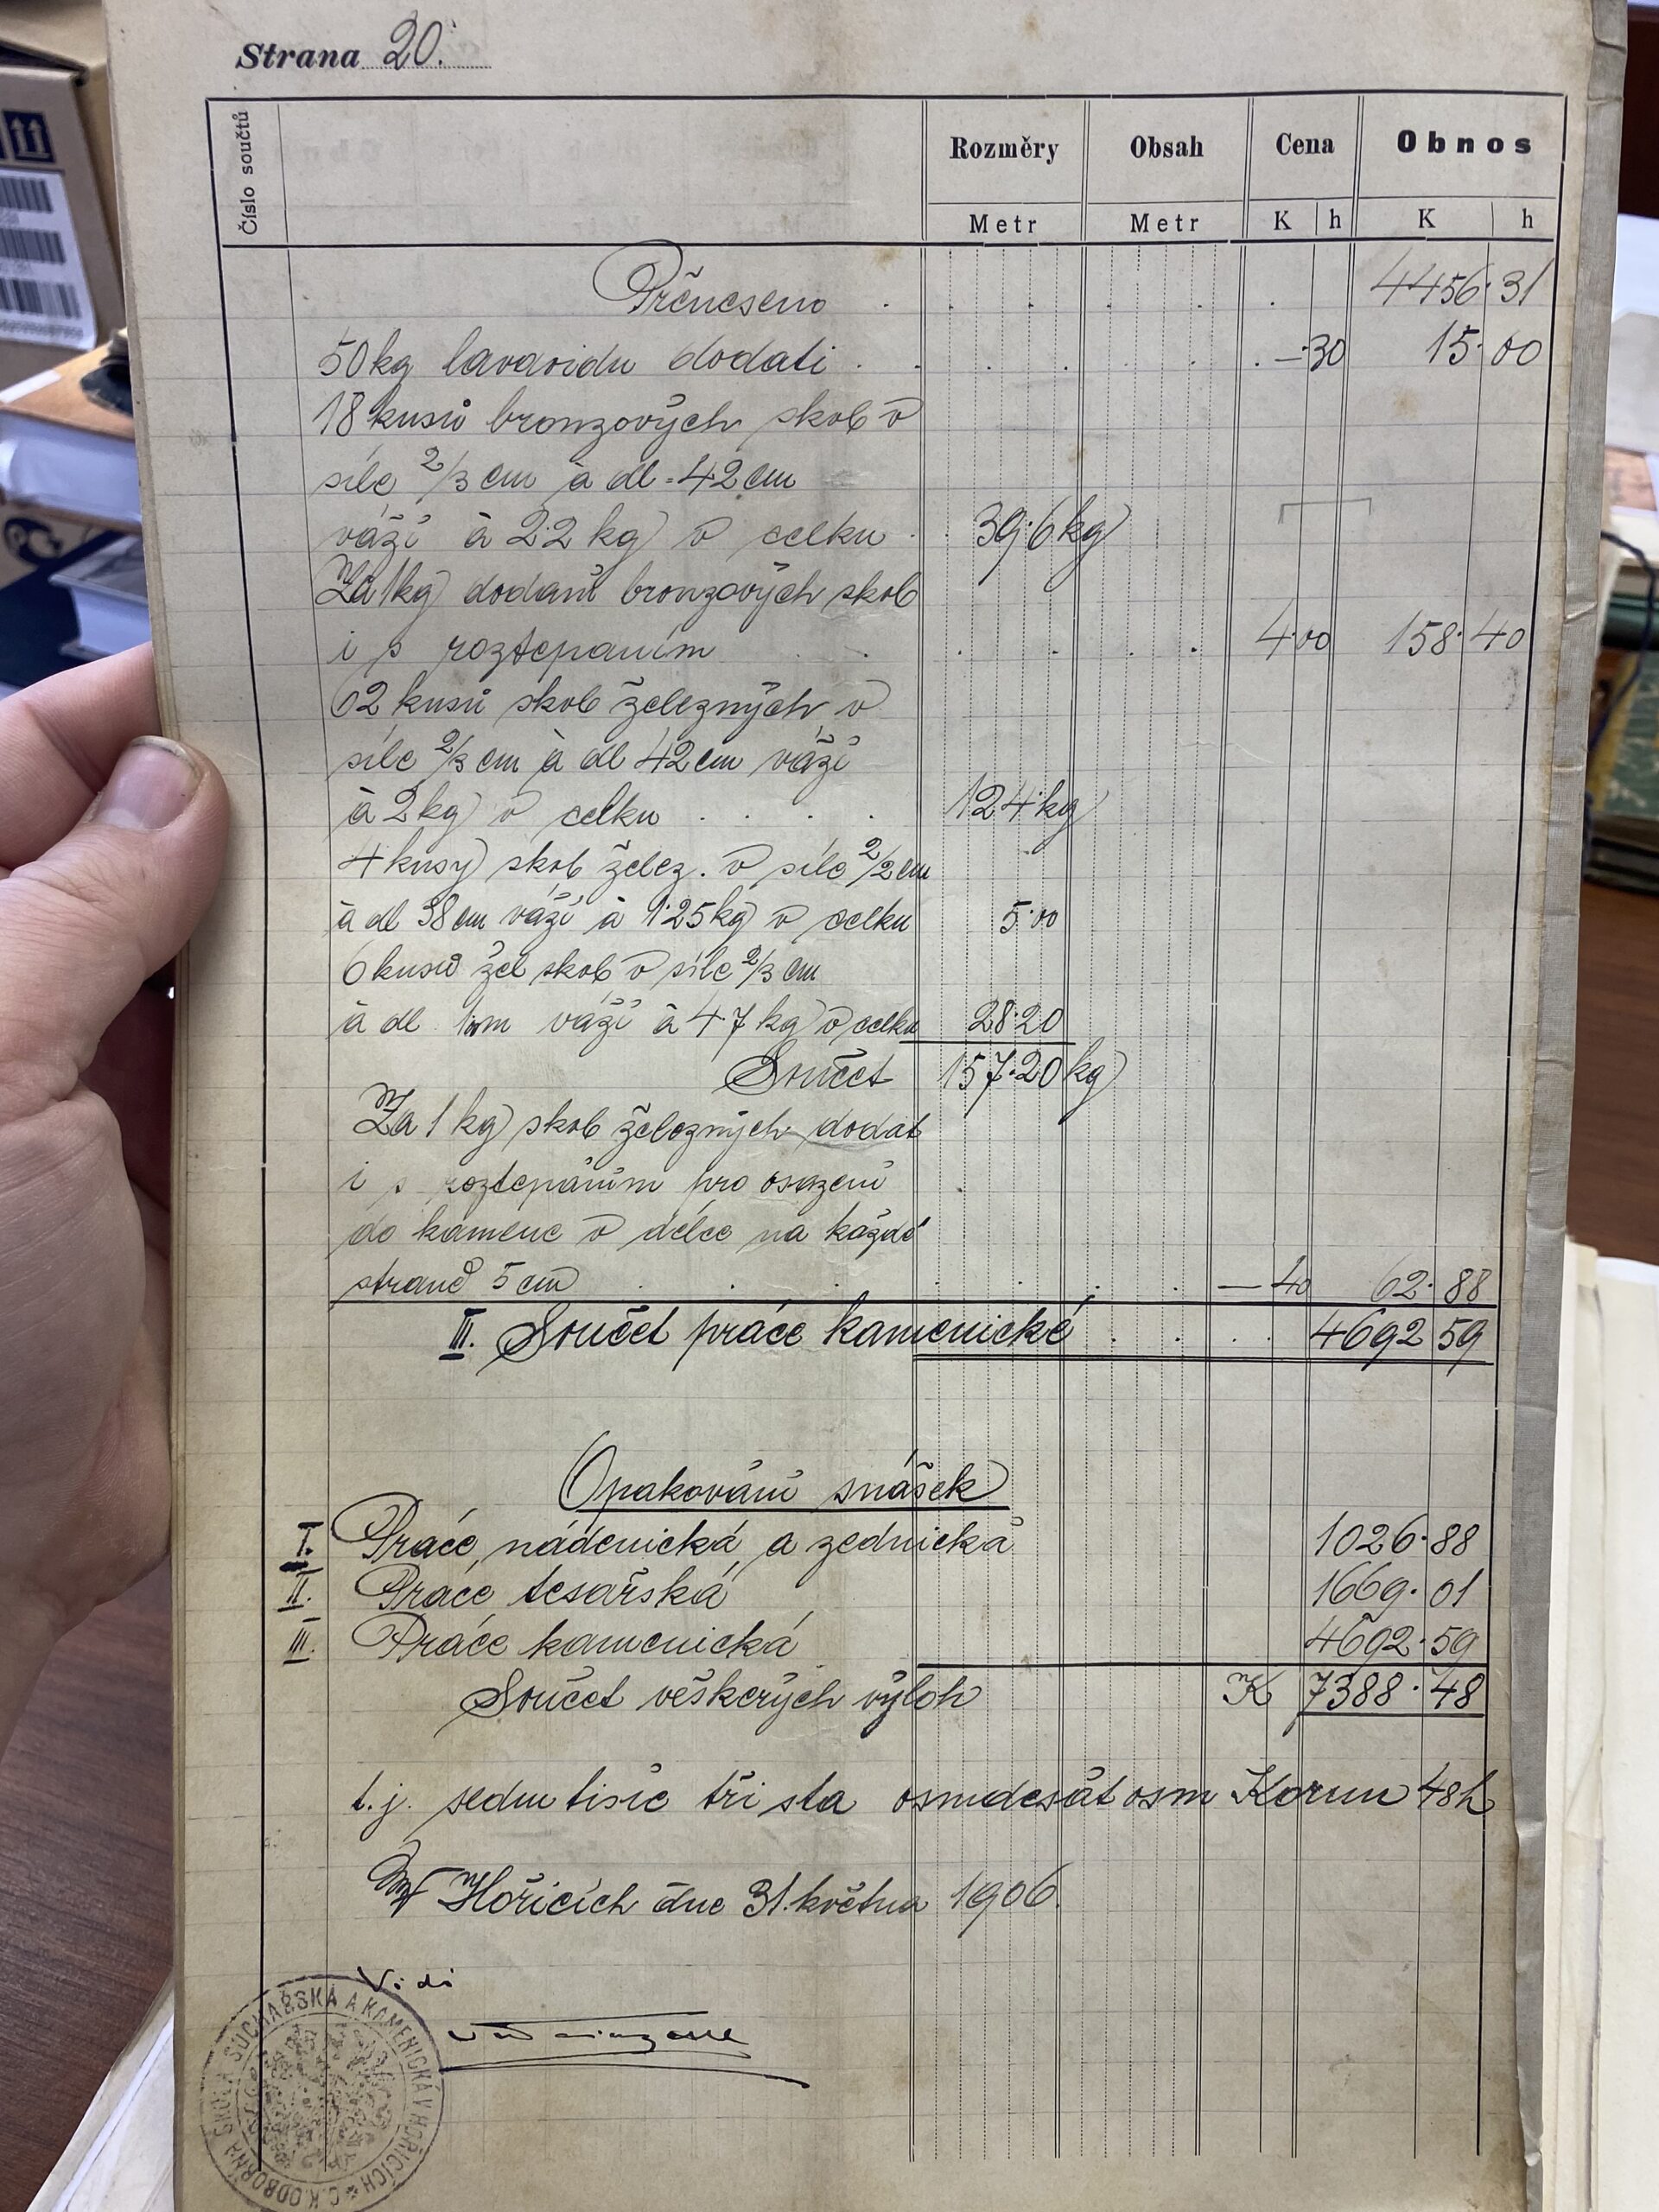 Strana 20.
Číslo součtů
Rozměry Obsah Cena Obnos
Metr Metr K h K h
Přeneseno . . . . . . 4456·31
50 kg lavoidu dodati . . . . . . —·30 15·00
18 kusů bronzových skob v
síle 2/3 cm à dl = 42 cm
váží à 2·2 kg v celku . . 39·6 kg
Za 1 kg dodání bronzových skob
i s roztepaním . . . . . . 4·00 158·40
62 kusů skob železných v
síle 2/3 cm à dl 42 cm váží
à 2 kg v celku . . . . 124 kg
4 kusy skob želez. v síle 2/2 cm
à dl 38 cm váží à 1·25 kg v celku 5·00
6 kusů žel skob v síle 2/3 cm
à dl 1 m váží à 4·7 kg v celku 28·20
Součet 157·20 kg
Za 1 kg skob železných dodat
i s roztepáním pro osazení
do kamene v délce na každé
straně 5 cm . . . . . . . —40 62·88
III. Součet práce kamenické . . . . 4692 59
Opakování snášek
I. Práce nádenická a zednická 1026·88
II. Práce tesařská 1669·01
III. Práce kamenická 4692·59
Součet veškerých výloh K 7388·48
t.j. sedm tisíc tři sta osmdesát osm Korun 48h
V Hořicích dne 31. května 1906.
Vidi
C. K. ODBORNÁ ŠKOLA SOCHAŘSKÁ A KAMENICKÁ V HOŘICÍCH